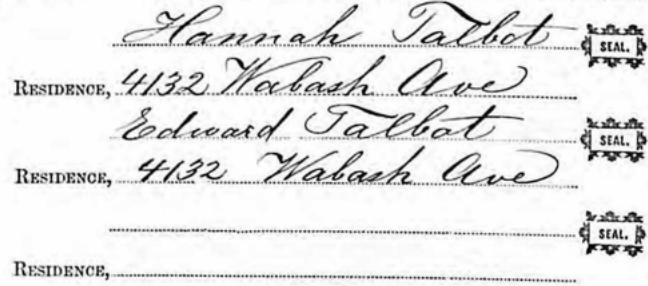 Hannah Talbot SEAL.
RESIDENCE, 4132 Wabash Ave
Edward Talbot SEAL.
RESIDENCE, 4132 Wabash Ave
SEAL.
RESIDENCE,